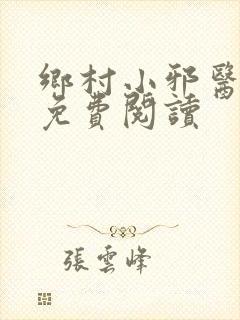 鄉村小邪醫
免費閱讀
張雲峰